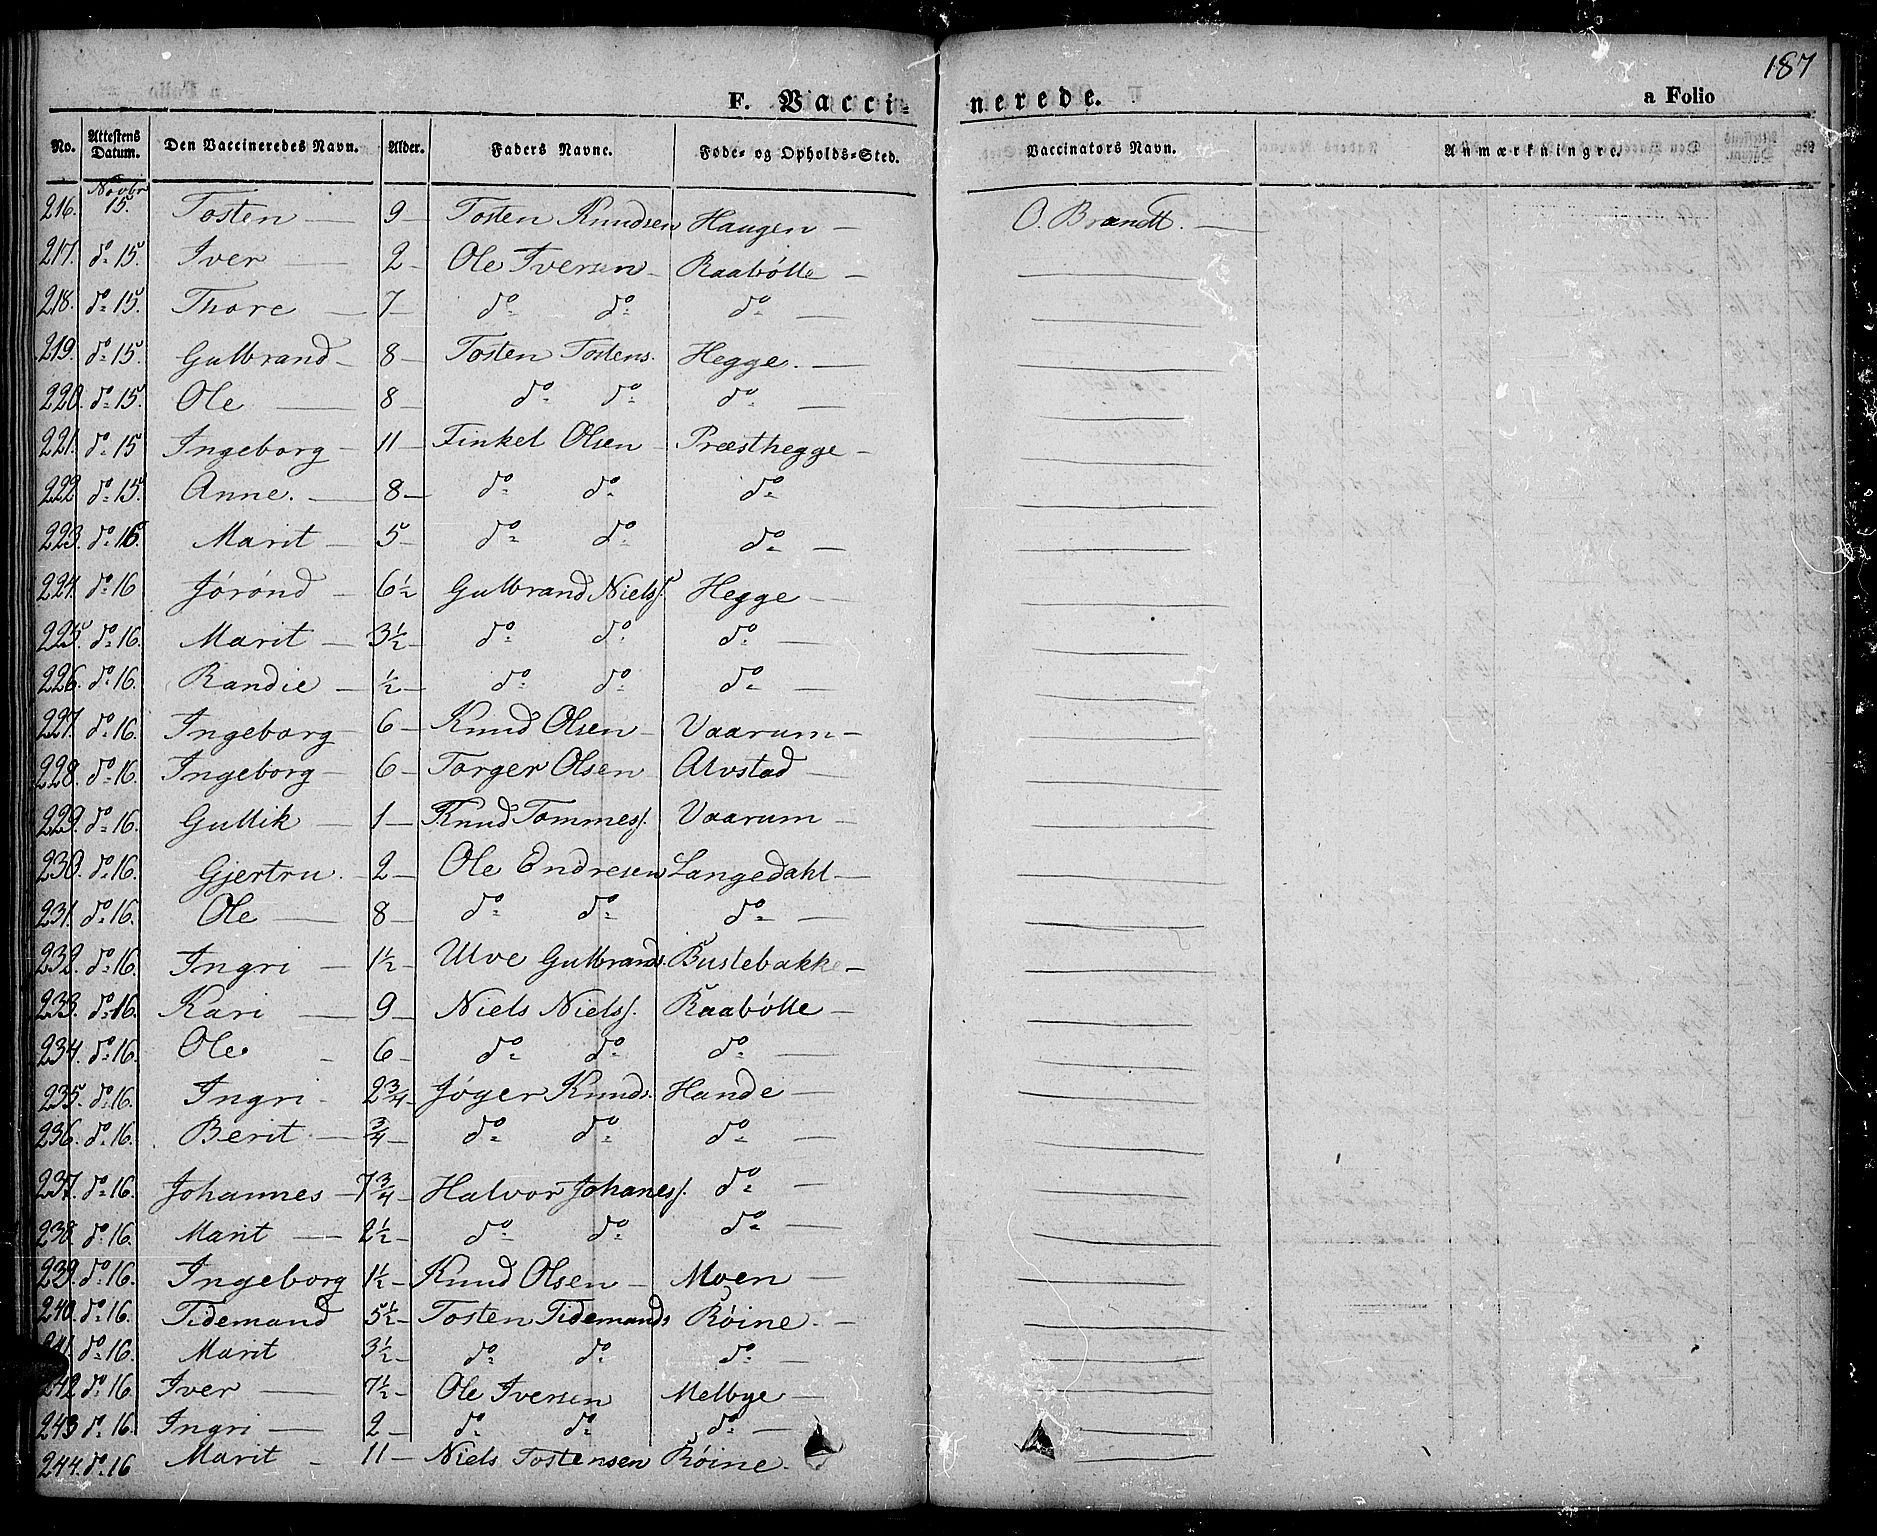 187
F. Vacci- nerede. a Folio
No. Attestens Datum. Den Vaccineredes Navn. Alder. Faders Navne. Føde- og Opholds-Sted. Vaccinators Navn. Anmærkninger.
216. Novbr 15. Tosten — 9 — Tosten Knudsen Haugen — O. Brandt. —
217. do 15. Iver — 2 — Ole Iversen — Raabølle —
218. do 15. Thore — 7 — do do do —
219. do 15. Gulbrand — 8 — Tosten Tostens. Hegge. —
220. do 15. Ole — 8 — do do do —
221. do 15 Ingeborg — 11 — Finkel Olsen — Præsthegge —
222 do 15. Anne. — 8 — do do do
223. do 16. Marit — 5 — do do do —
224. do 16 Jørønd — 6½ Gulbrand Nielss. Hegge —
225 do 16. Marit — 3½ — do do do —
226. do 16. Randie — ½ — do do do —
227. do 16. Ingeborg — 6 — Knud Olsen — Vaarum —
228. do 16. Ingeborg — 6 — Torger Olsen Alvstad —
229. do 16. Gullik — 1 — Knud Tommess. Vaarum —
230. do 16. Gjertru. — 2 — Ole Endresen Langedahl —
231. do 16. Ole — 8 — do do do —
232. do 16. Ingri — 1½ — Ulve Gulbrands. Bustebakke —
233. do 16. Kari — 9 — Niels Nielss. Raabølle —
234. do 16. Ole — 6 — do do do —
235. do 16. Ingri — 2¾ — Jøger Knuds. Hande —
236. do 16. Berit — ¾ — do do do —
237. do 16. Johannes — 7¾ — Halvor Johaness. do —
238. do 16. Marit — 2½ — do do do —
239. do 16. Ingeborg 1½ — Knud Olsen — Moen —
240. do 16. Tidemand 5½ — Tosten Tidemands Røine. —
241. do 16. Marit 3½ — do do do —
242 do 16. Iver — 7½ — Ole Iversen Melbye —
243 do 16. Ingri — 2 — do do do —
244. do 16 Marit — 11 — Niels Tostensen Røine.